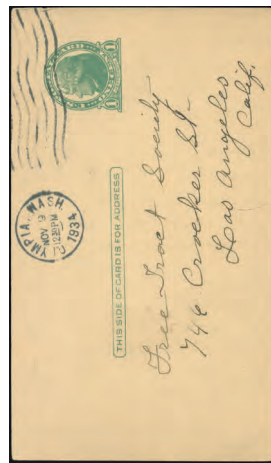 OLYMPIA, WASH.
NOV 9
12 30 PM
1934
THIS SIDE OF CARD IS FOR ADDRESS
Free Tract Society
746 Crocker St-
Los Angeles
Calif.